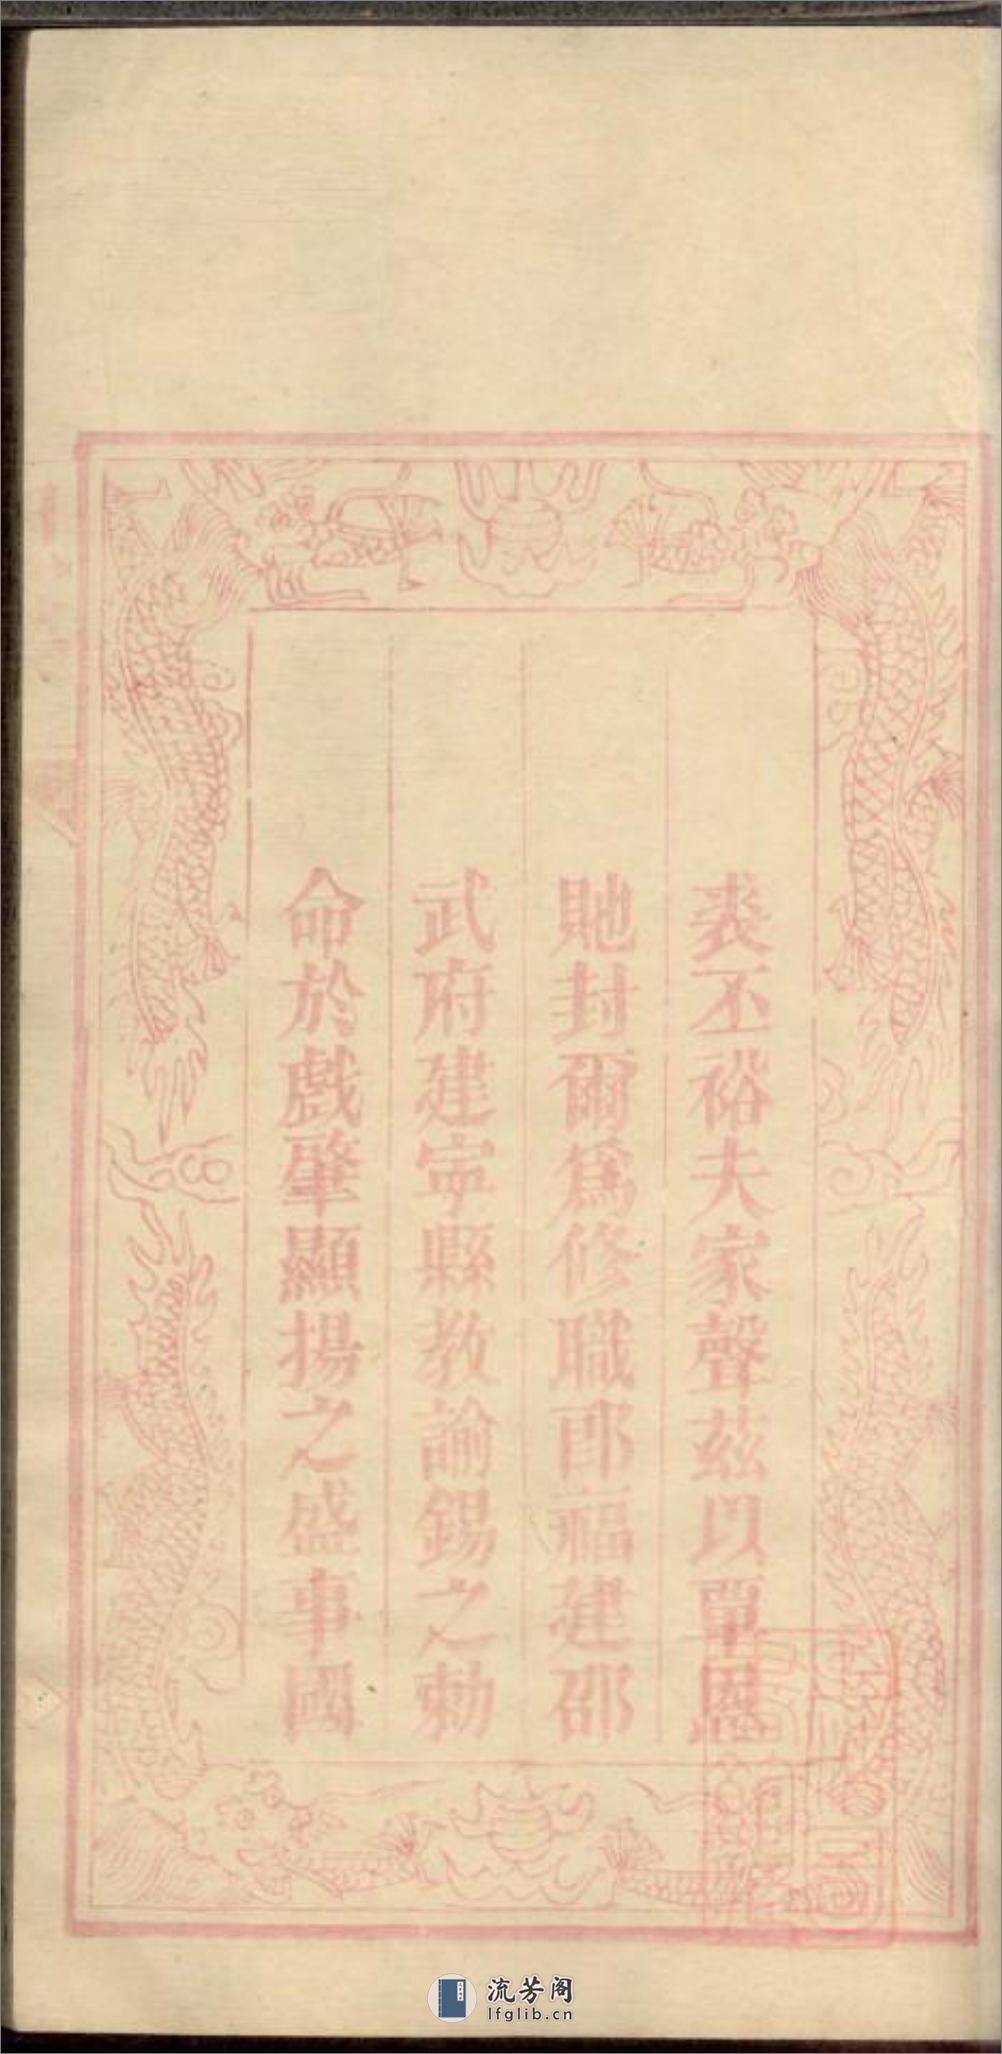 裘丕裕夫家聲茲以覃恩
貤封爾爲修職郎福建邵
武府建寧縣教諭錫之勅
命於戲肇顯揚之盛事國
流芳阁
lfglib.cn